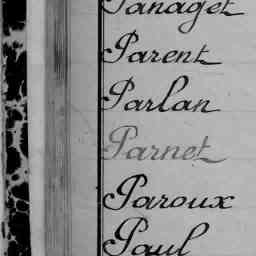 Panaget
Parent
Parlan
Parnet
Paroux
Paul